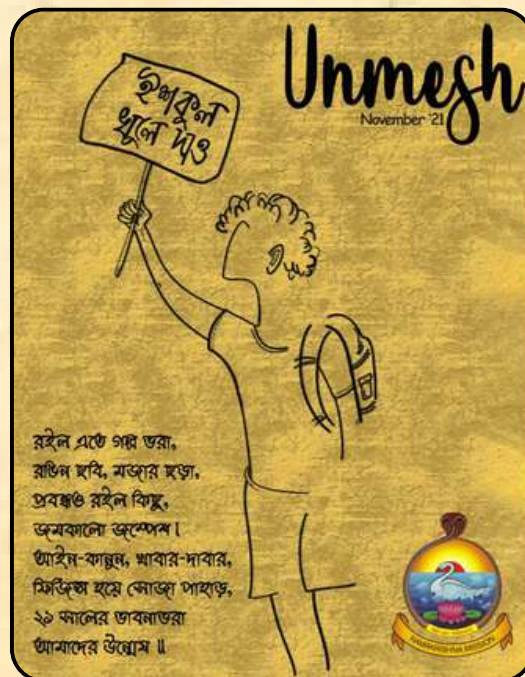 ইশকুল
খুলে দাও
Unmesh
November '21
রইল এতে গল্প ভরা,
রঙিন ছবি, মজার ছড়া,
প্রবন্ধও রইল কিছু,
জমকালো জম্পেশ।
আইন-কানুন, খাবার-দাবার,
ফিজিক্স হয়ে সোজা পাহাড়,
২১ সালের ভাবনাভরা
আমাদের উন্মেষ ॥
RAMAKRISHNA MISSION